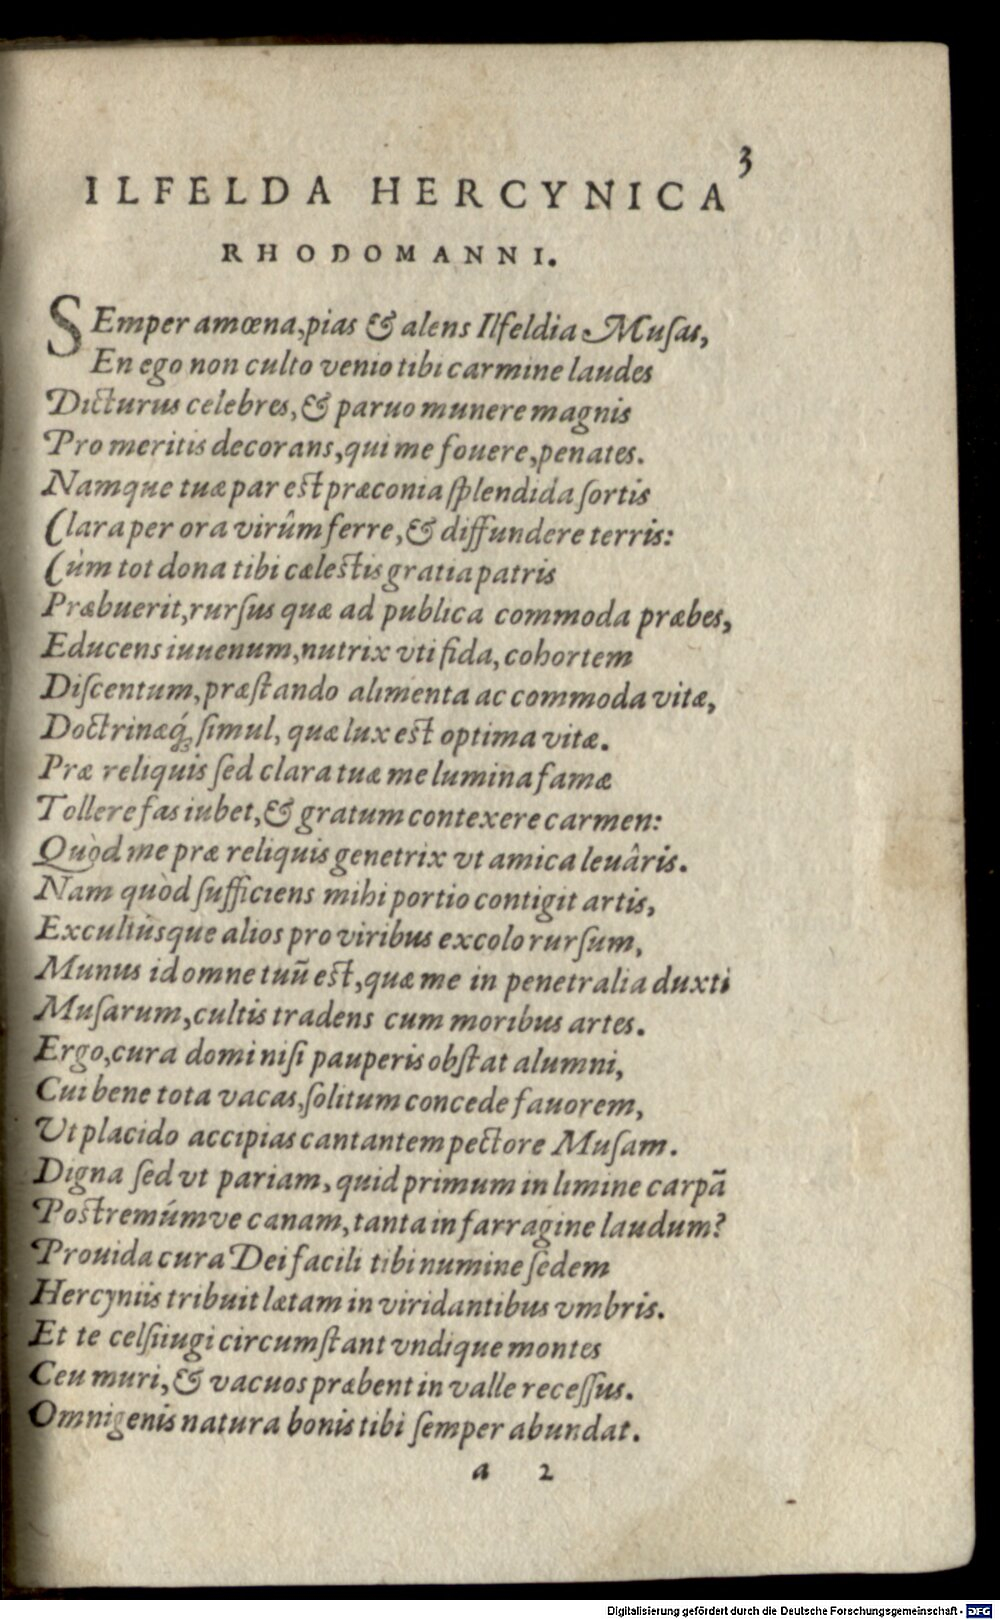 3
ILFELDA HERCYNICA
RHODOMANNI.
SEmper amœna, pias & alens Ilfeldia Musas,
En ego non culto venio tibi carmine laudes
Dicturus celebres, & paruo munere magnis
Pro meritis decorans, qui me fouere, penates.
Namque tuæ par est præconia splendida sortis
Clara per ora virûm ferre, & diffundere terris:
Cùm tot dona tibi cælestis gratia patris
Præbuerit, rursus quæ ad publica commoda præbes,
Educens iuuenum, nutrix vti fida, cohortem
Discentum, præstando alimenta ac commoda vitæ,
Doctrinæq́; simul, quæ lux est optima vitæ.
Præ reliquis sed clara tuæ me lumina famæ
Tollere fas iubet, & gratum contexere carmen:
Quòd me præ reliquis genetrix vt amica leuâris.
Nam quòd sufficiens mihi portio contigit artis,
Excultúsque alios pro viribus excolo rursum,
Munus id omne tuũ est, quæ me in penetralia duxti
Musarum, cultis tradens cum moribus artes.
Ergo, cura domi nisi pauperis obstat alumni,
Cui bene tota vacas, solitum concede fauorem,
Ut placido accipias cantantem pectore Musam.
Digna sed vt pariam, quid primum in limine carpã
Postremúmve canam, tanta in farragine laudum?
Prouida cura Dei facili tibi numine sedem
Hercyniis tribuit lætam in viridantibus vmbris.
Et te celsiiugi circumstant vndique montes
Ceu muri, & vacuos præbent in valle recessus.
Omnigenis natura bonis tibi semper abundat.
a 2
Digitalisierung gefördert durch die Deutsche Forschungsgemeinschaft - DFG